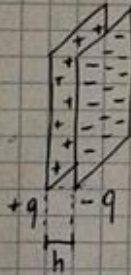 +q -q
h